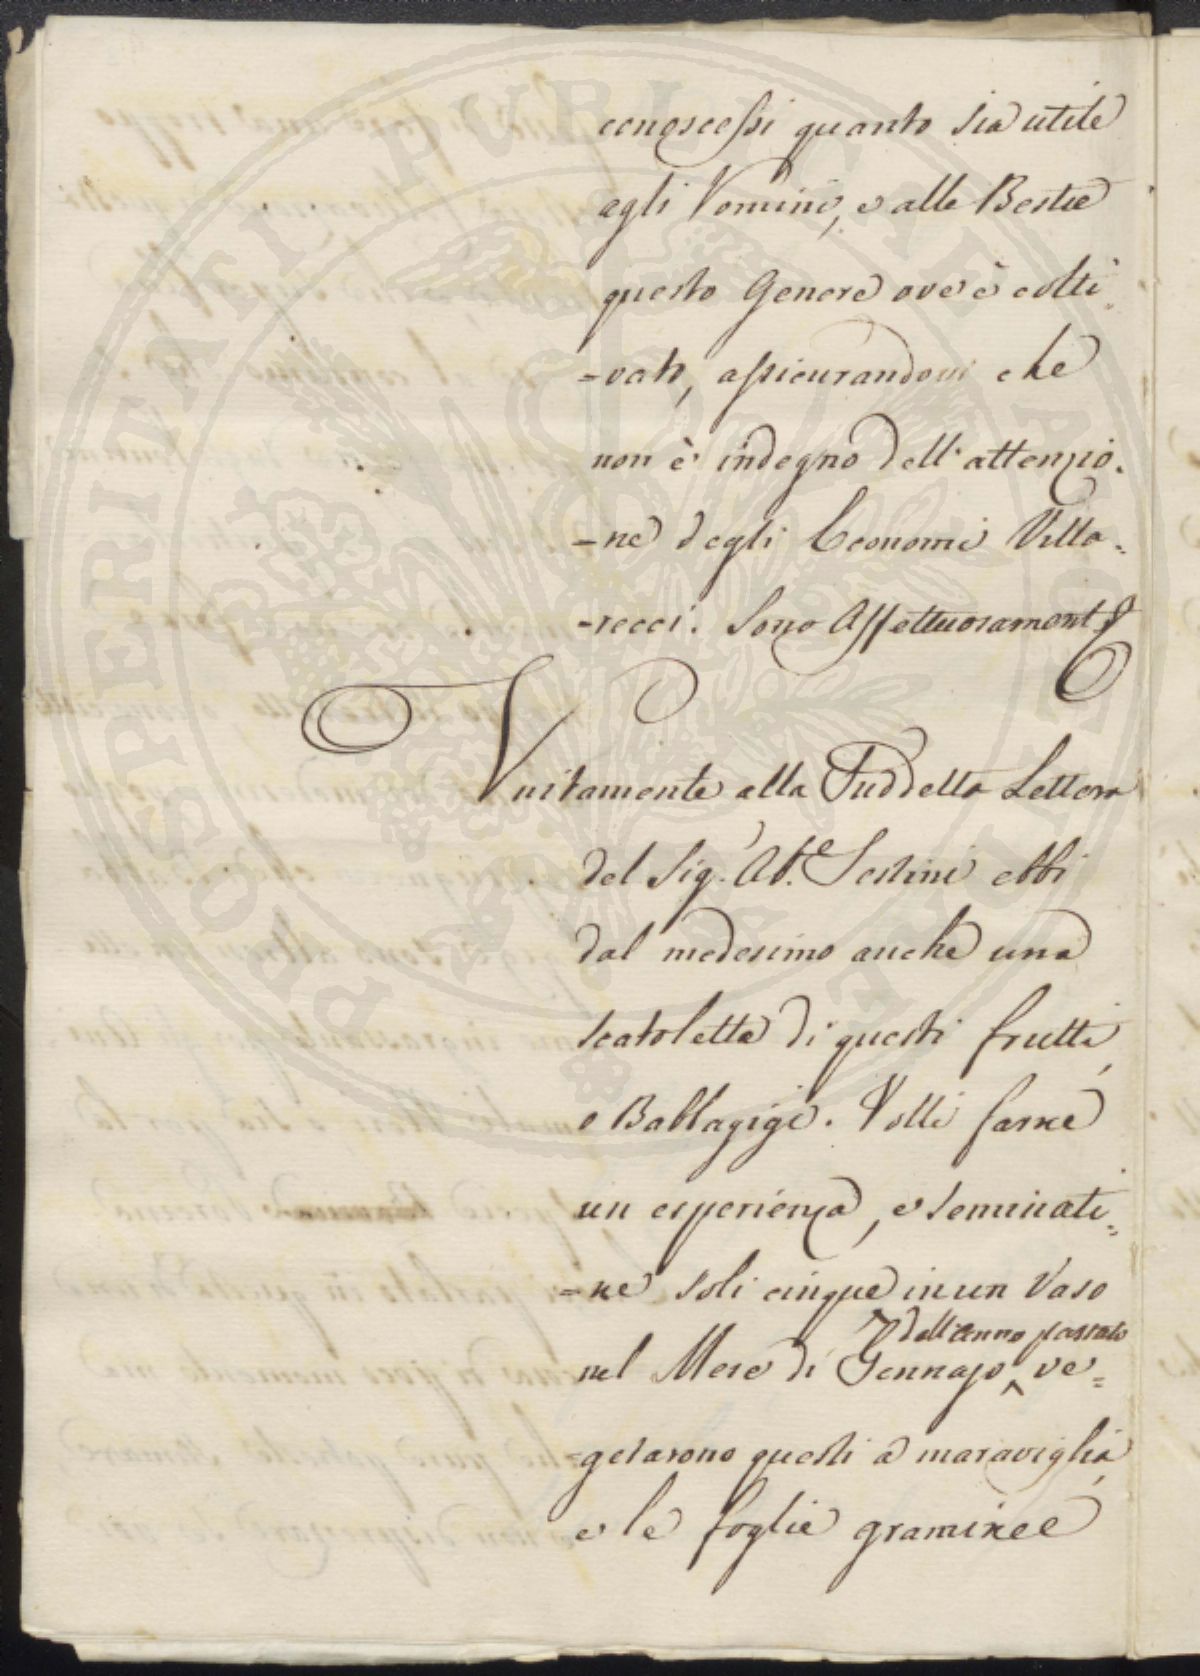 conoscessi quanto sia utile
agli Vomini, e alle Bestie
questo Genere ove è colti=
=vato, assicurandovi che
non è indegno dell'attenzio=
=ne degli Economi Villa=
=recci. Sono Affettuosamente
Vnitamente alla Suddetta Lettera
del Sig.r Ab.e Sestini ebbi
dal medesimo anche una
scatoletta di questi frutti,
o Bablagigi. Volli farne
un esperienza, e seminati=
=ne soli cinque in un Vaso
dell'anno passato
nel Mese di Gennajo ^ ve=
=getarono questi a maraviglia,
e le foglie graminee
PROSPERITATI PUBLICAE AUGENDAE